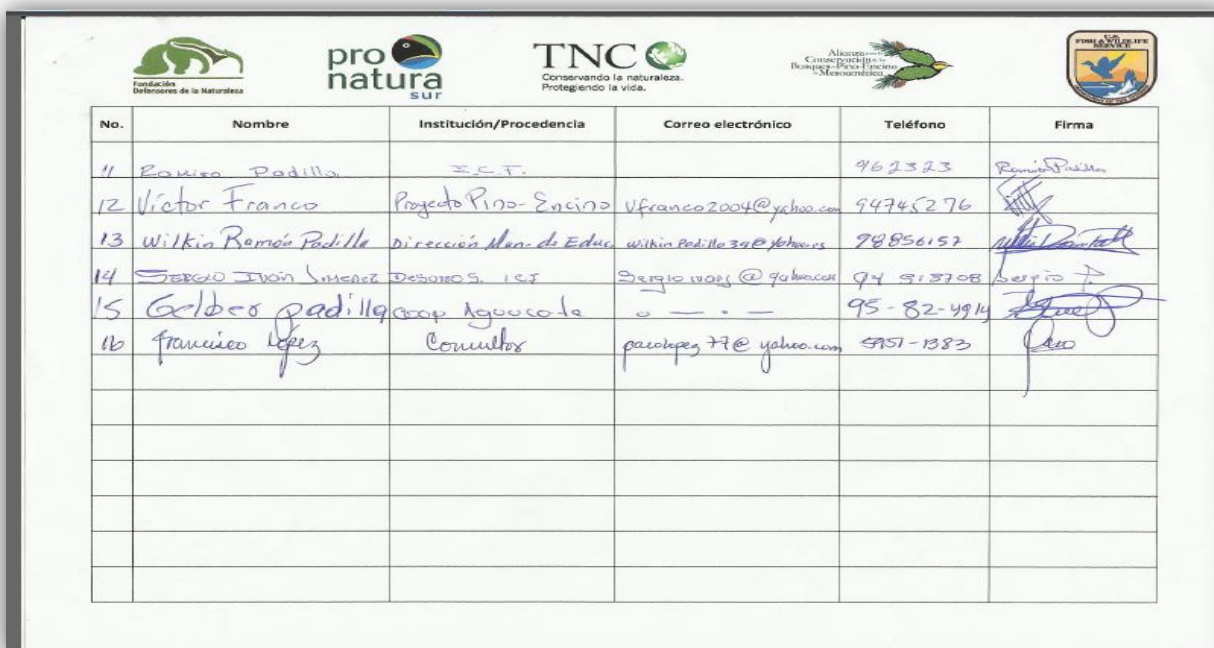 Fundación
Defensores de la Naturaleza
pro
natura
sur
TNC
Conservando la naturaleza.
Protegiendo la vida.
Alianza para la
Conservación de los
Bosques de Pino-Encino
de Mesoamérica
U.S.
FISH & WILDLIFE
SERVICE
No. Nombre Institución/Procedencia Correo electrónico Teléfono Firma
11 Ramiro Padilla I.C.F. 962323 Ramiro Padilla
12 Víctor Franco Proyecto Pino-Encino Vfranco2004@yahoo.com 94745276
13 Wilkin Ramón Padilla Dirección Mun. de Educ wilkin Padilla39@yahoo.es 98856157
14 SERGIO IVÁN JIMENEZ @yahoo.com Sergio
15 Gelber padilla coop 95-82-4914
16 francisco López Consultor pacolopez77@yahoo.com 5951-1383 Paco